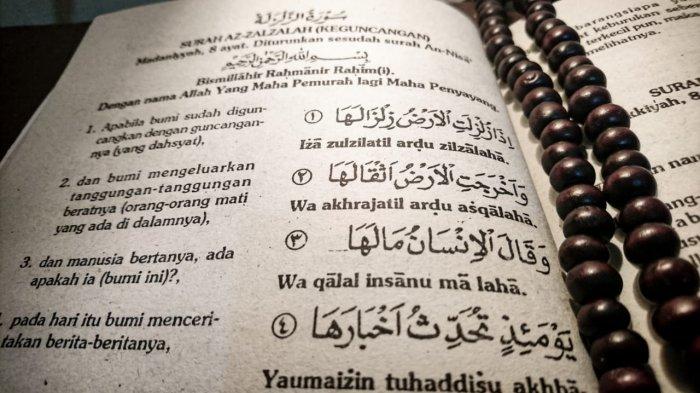 سُوْرَةُ الزَّلْزَلَةِ
SURAH AZ-ZALZALAH (KEGUNCANGAN)
Madaniyyah, 8 ayat. Diturunkan sesudah surah An-Nisā'
بِسْمِ اللهِ الرَّحْمٰنِ الرَّحِيْمِ
Bismillāhir Raḥmānir Raḥīm(i).
Dengan nama Allah Yang Maha Pemurah lagi Maha Penyayang.
1. Apabila bumi sudah digun-
cangkan dengan guncangan-
nya (yang dahsyat),
اِذَا زُلْزِلَتِ الْاَرْضُ زِلْزَالَهَا ١
Iżā zulzilatil arḍu zilzālahā.
2. dan bumi mengeluarkan
tanggungan-tanggungan
beratnya (orang-orang mati
yang ada di dalamnya),
وَاَخْرَجَتِ الْاَرْضُ اَثْقَالَهَا ٢
Wa akhrajatil arḍu aṡqālahā.
3. dan manusia bertanya, ada
apakah ia (bumi ini)?,
وَقَالَ الْاِنْسَانُ مَالَهَا ٣
Wa qālal insānu mā lahā.
pada hari itu bumi menceri-
takan berita-beritanya,
يَوْمَئِذٍ تُحَدِّثُ اَخْبَارَهَا ٤
Yaumaiżin tuḥaddiṡu akhbā-
barangsiapa
keburukan
terkecil pun,
melihatnya.
SURA